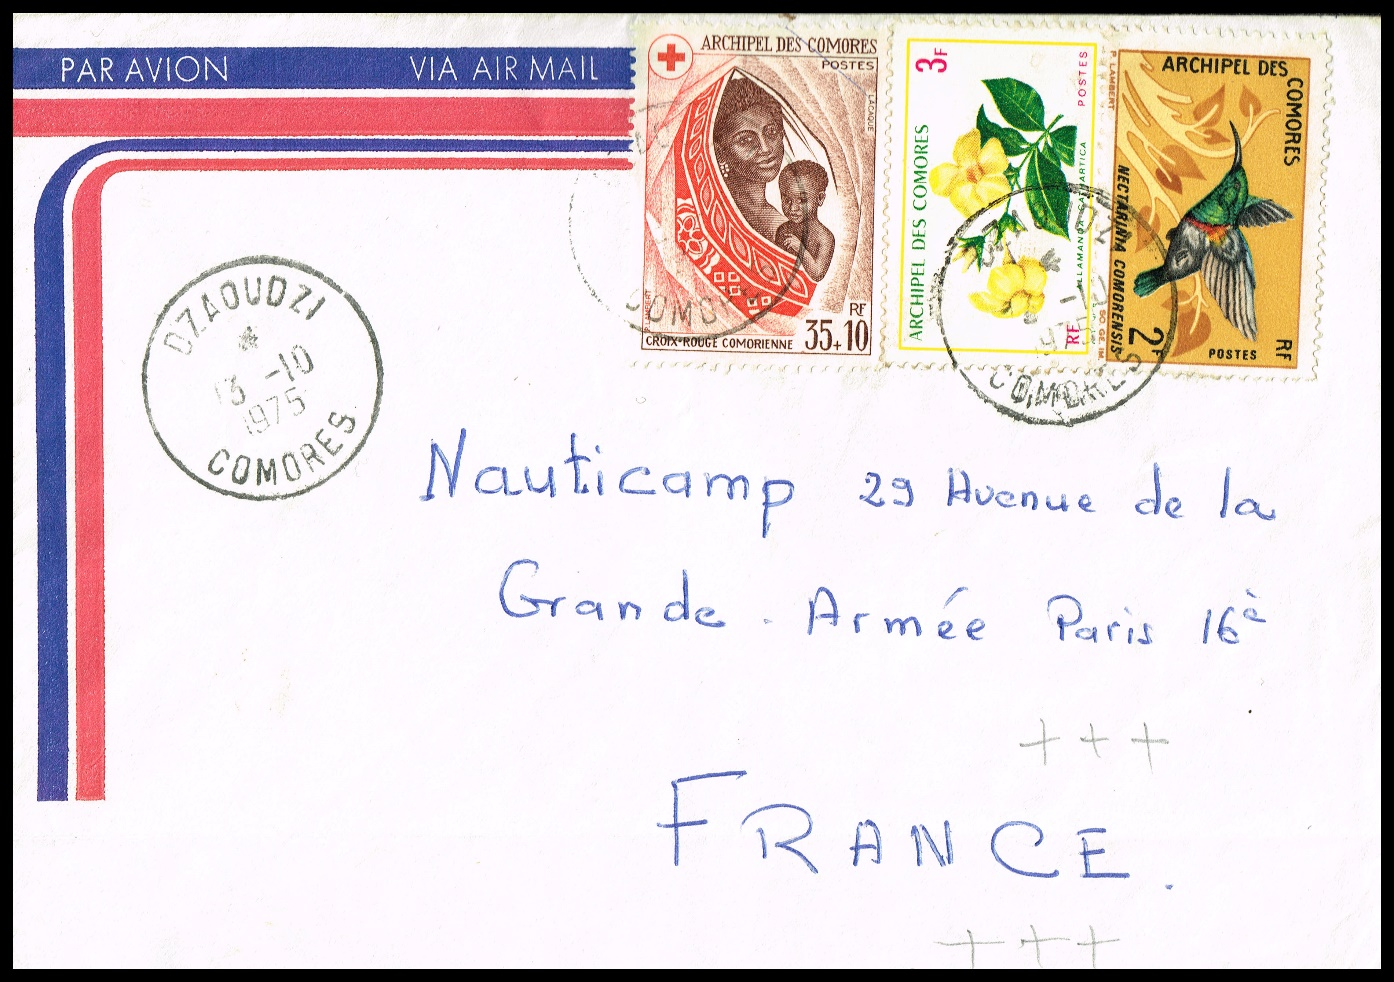 PAR AVION
VIA AIR MAIL
ARCHIPEL DES COMORES
POSTES
LACAQUE
RF
35+10
CROIX-ROUGE COMORIENNE
3F
POSTES
ARCHIPEL DES COMORES
ALLAMANDA CATHARTICA
RF
P. LAMBERT
SO.GE.IM.
ARCHIPEL DES
COMORES
NECTARINIA COMORENSIS
2F
POSTES
RF
DZAOUDZI
13 -10
1975
COMORES
COMORES
1975
COMORES
Nauticamp 29 Avenue de la
Grande - Armée Paris 16è
+++
FRANCE.
+++